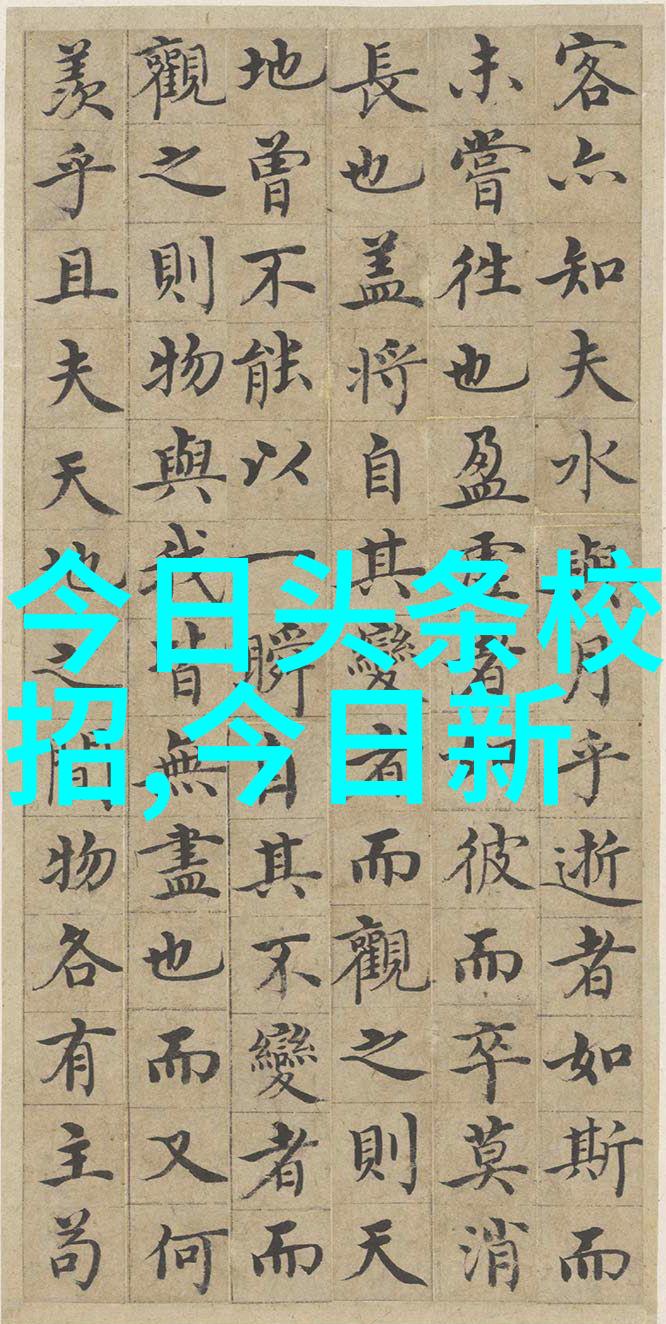 客亦知夫水與月乎逝者如斯而
未嘗徃也盈虛者彼而卒莫消
長也盖將自其變者而觀之則天
地曾不能以一瞬自其不變者而
觀之則物與我皆無盡也而又何
羨乎且夫天地之間物各有主苟
今日头条校
招,今日新